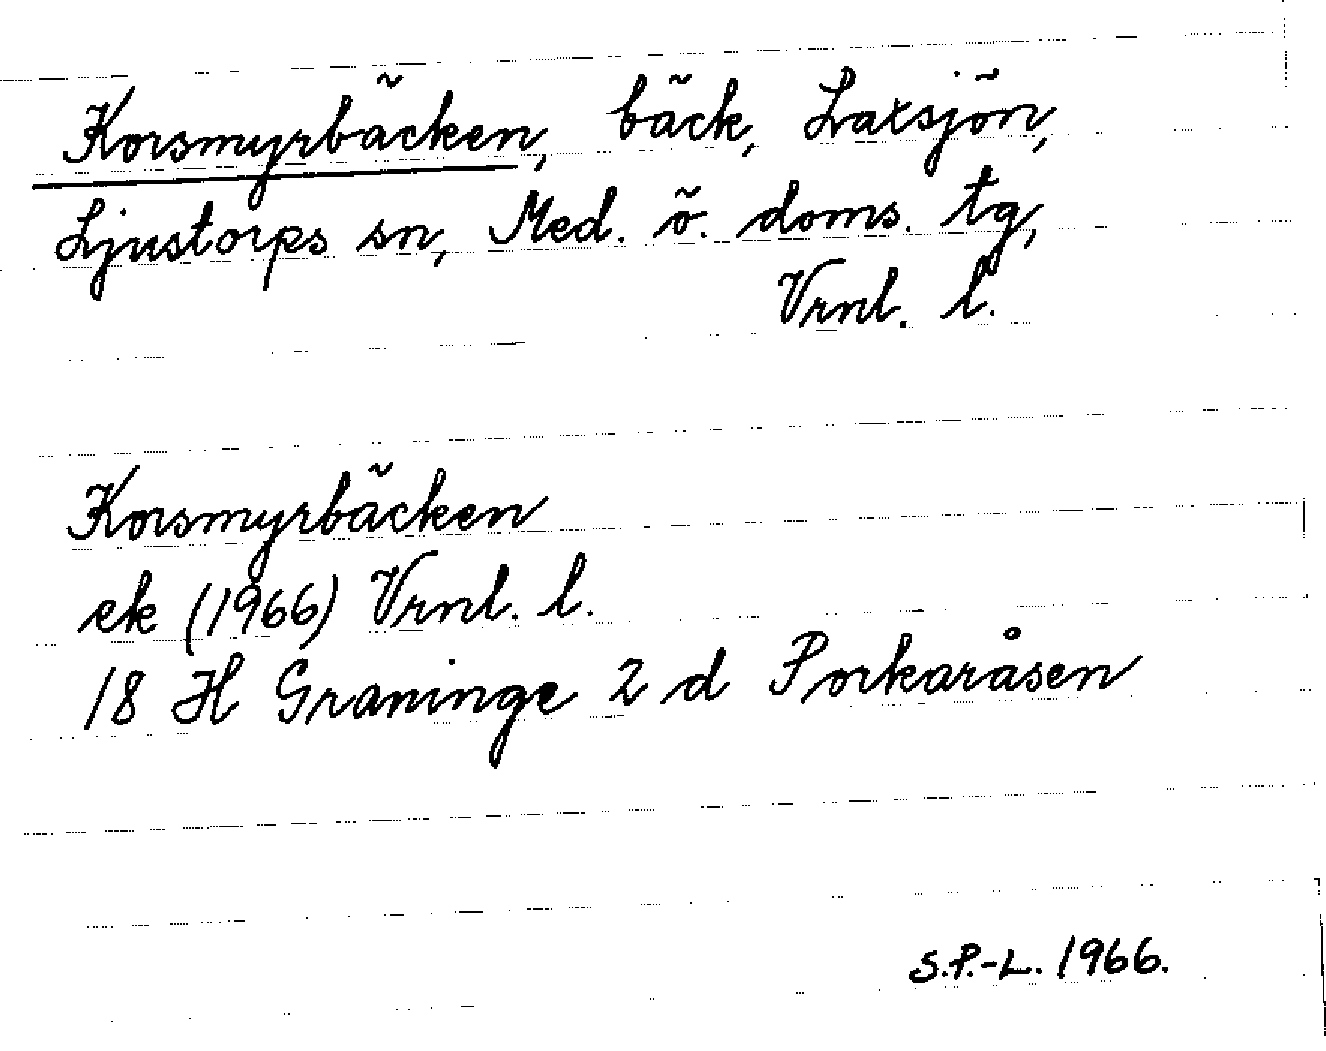 Korsmyrbäcken, bäck, Laxsjön,
Ljustorps sn, Med. ö. doms. tg,
Vrnl. l.
Korsmyrbäcken
ek (1966) Vrnl. l.
18 H Graninge 2 d Porkaråsen
S.P.-L. 1966.